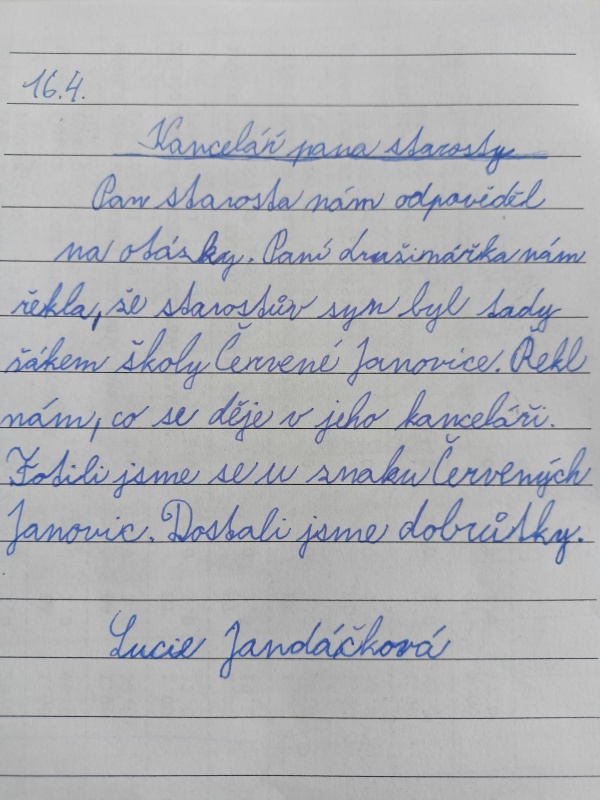 16.4.
Kancelář pana starosty
Pan starosta nám odpověděl
na otázky. Paní družinářka nám
řekla, že starostův syn byl tady
žákem školy Červené Janovice. Řekl
nám, co se děje v jeho kanceláři.
Fotili jsme se u znaku Červených
Janovic. Dostali jsme dobrůtky.
Lucie Jandáčková